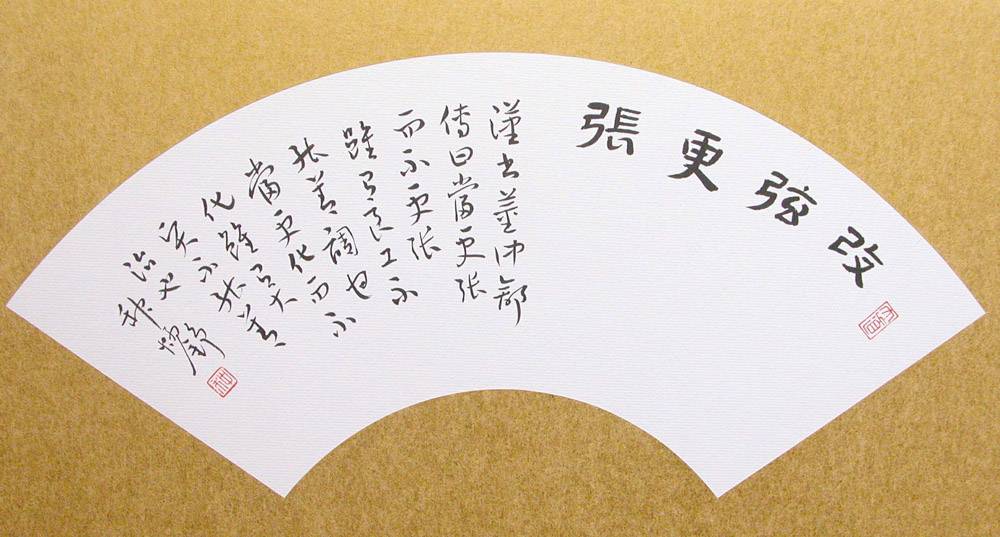 改弦更張
漢書董仲舒
傳曰當更張
而不更張
雖有良工不
能善調也
當更化而不
化雖有大
賢不能善
治也